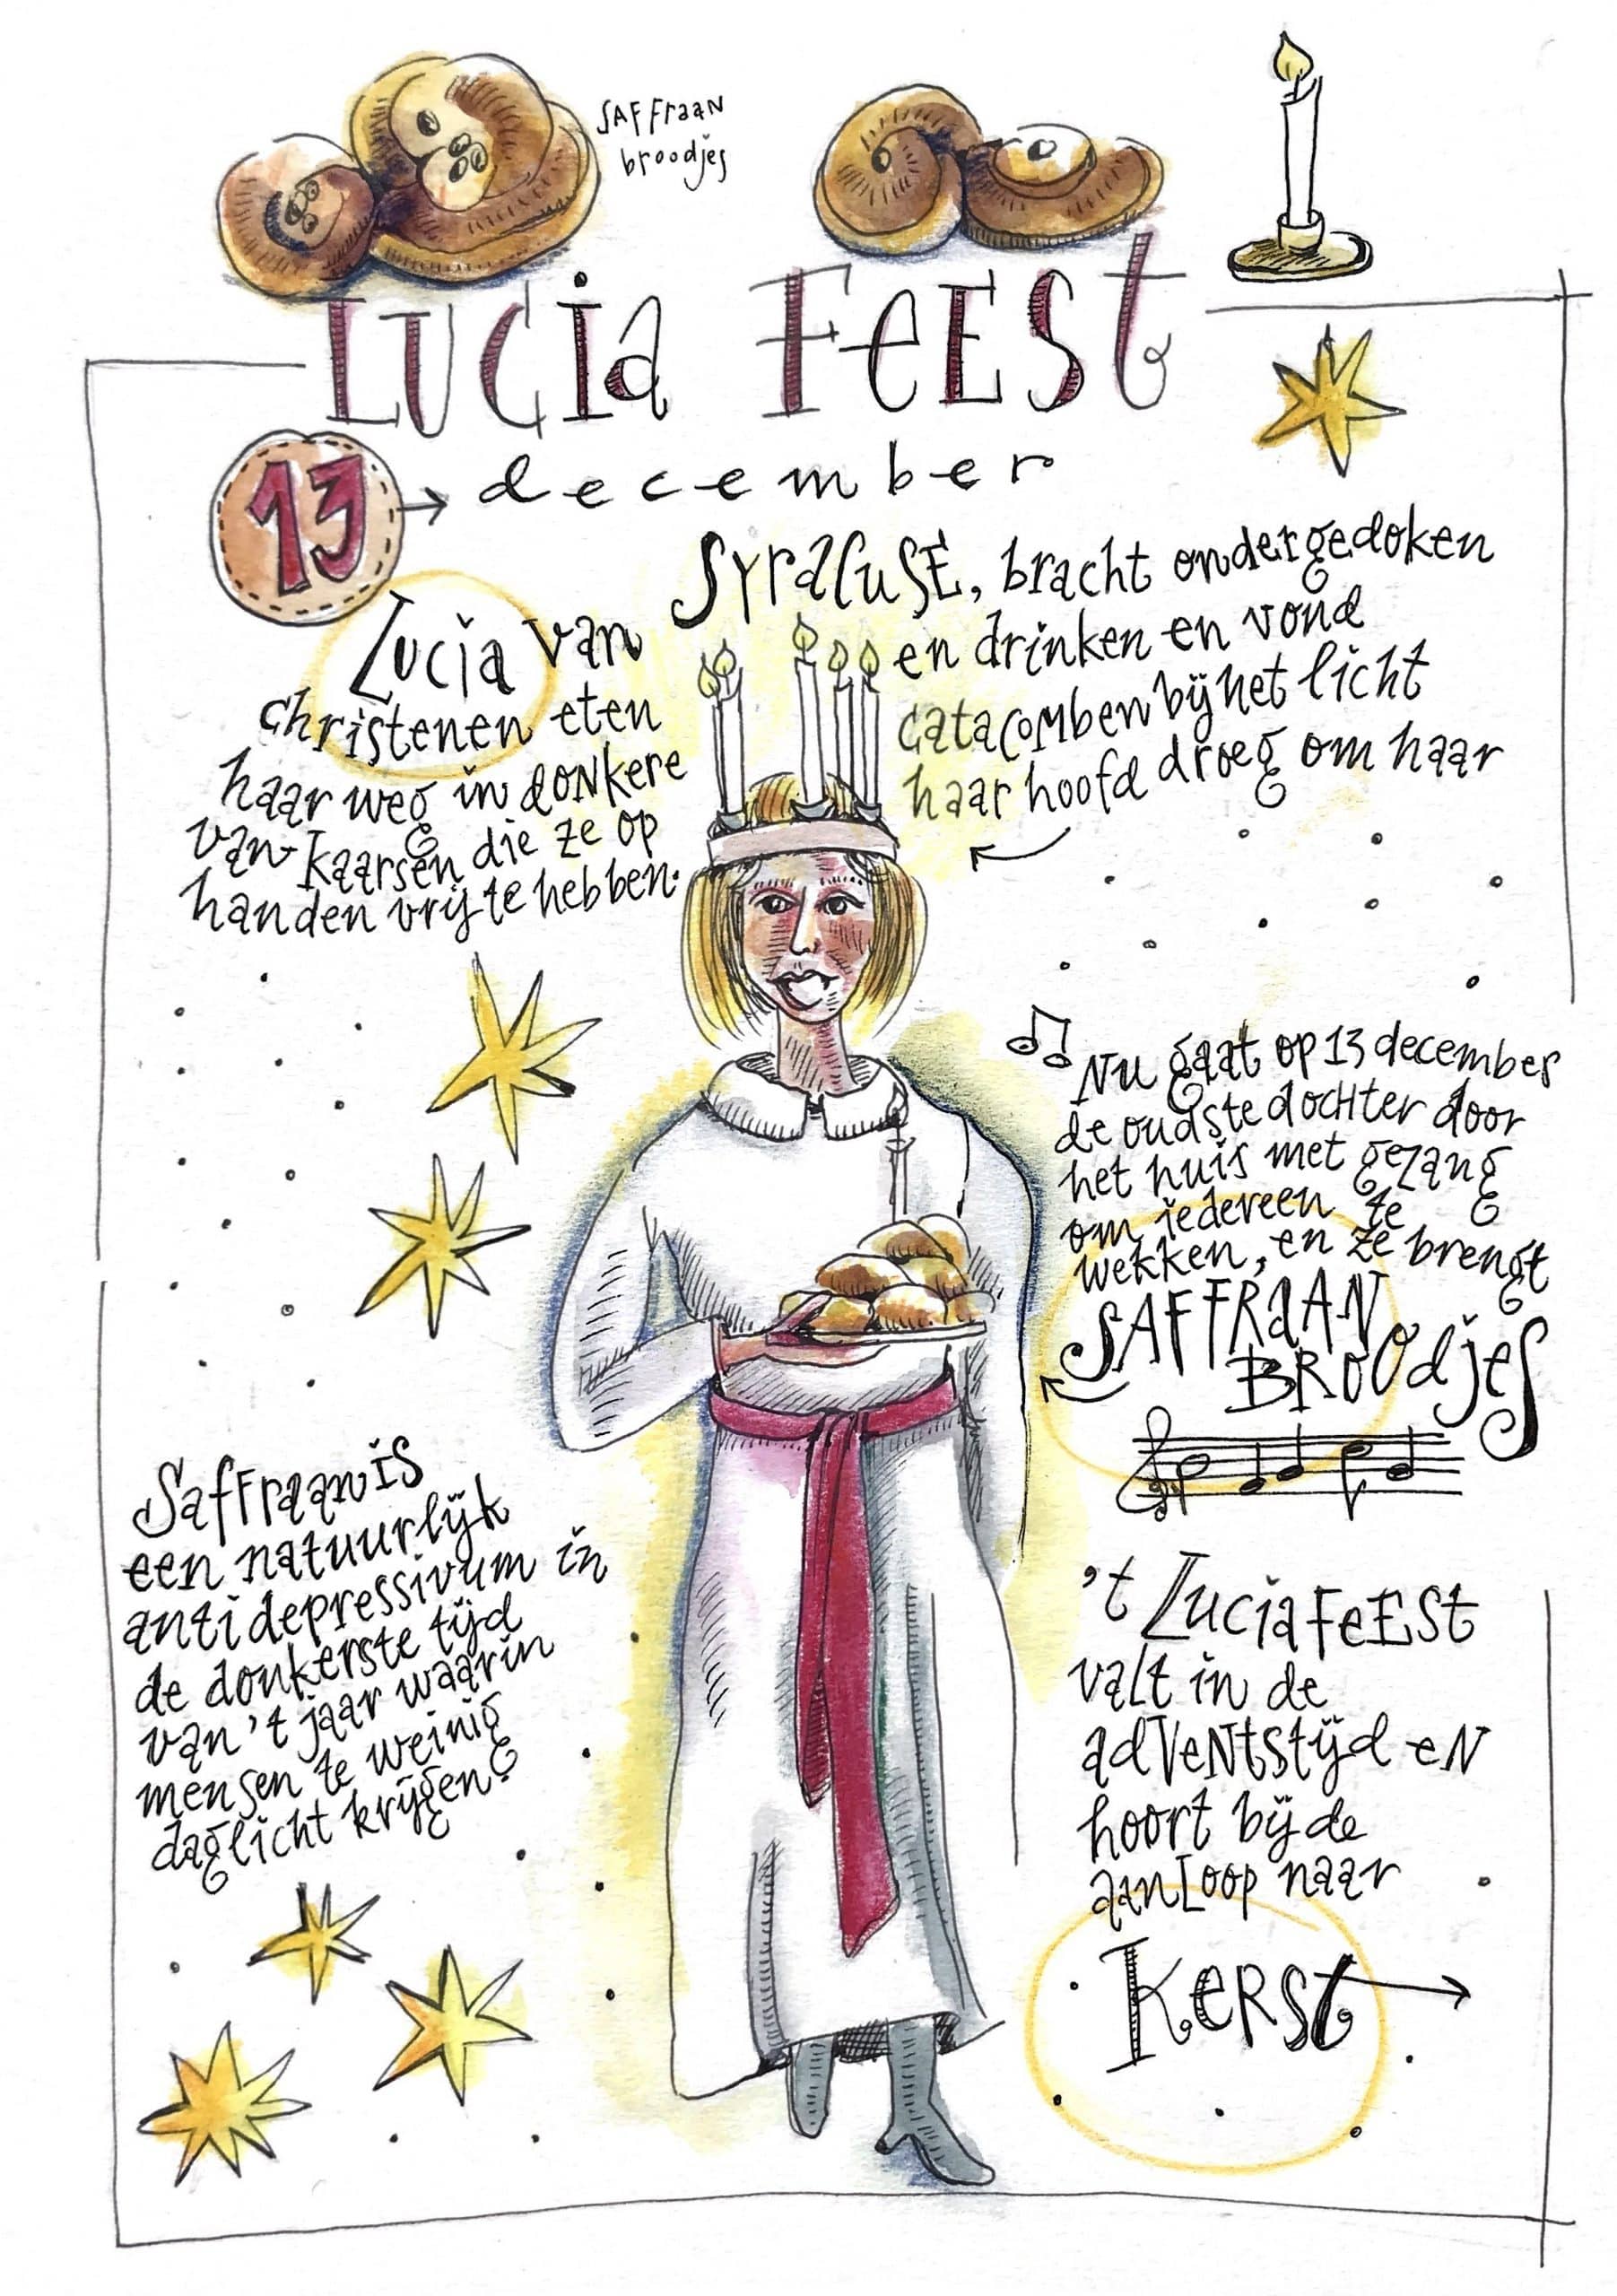 SAFFraaN
broodjes
LUCia FeESt
13 december
Lucia van SYraCuSE, bracht ondergedoken
christenen eten en drinken en vond
haar weg in donkere catacomben bij het licht
van kaarsen die ze op haar hoofd droeg om haar
handen vrij te hebben.
Nu gaat op 13 december
de oudste dochter door
het huis met gezang
om iedereen te
wekken, en ze brengt
SAFFRaAN
BROodjeS
Saffraan is
een natuurlijk
antidepressivum in
de donkerste tijd
van 't jaar waarin
mensen te weinig
daglicht krijgen.
't LuciaFeEst
valt in de
adventstijd en
hoort bij de
aanloop naar
KERSt